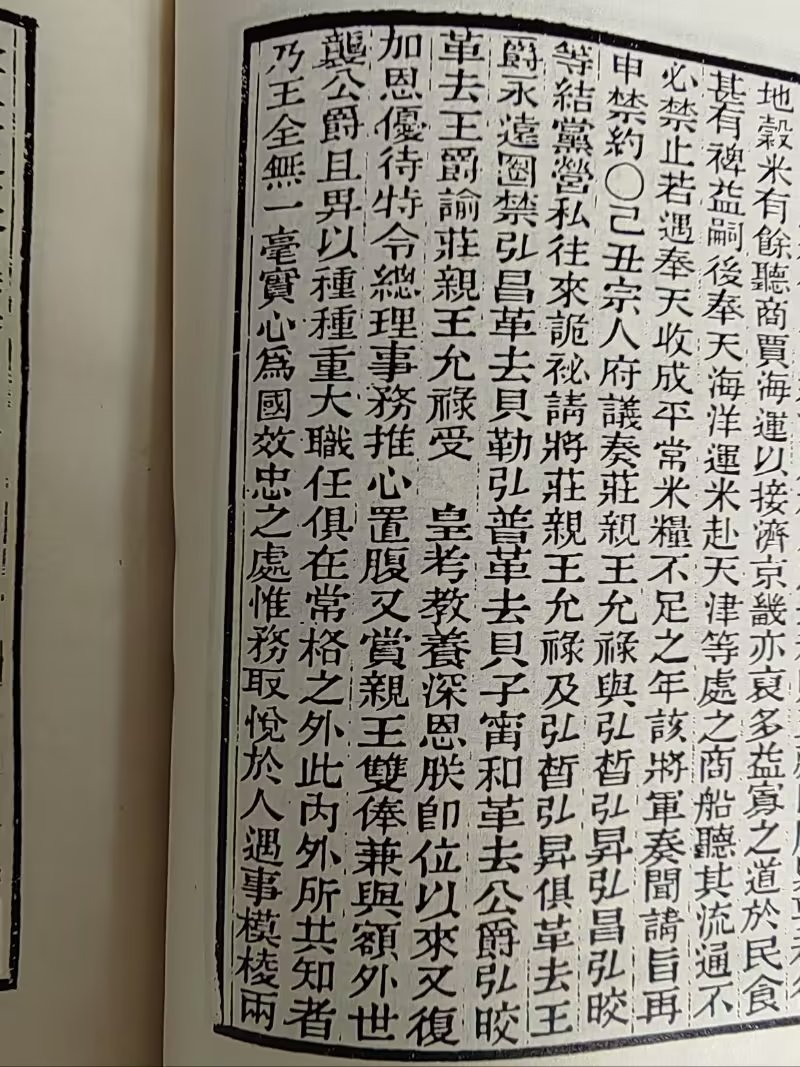 地穀米有餘聽商賈海運以接濟京畿亦裒多益寡之道於民食
甚有裨益嗣後奉天海洋運米赴天津等處之商船聽其流通不
必禁止若遇奉天收成平常米糧不足之年該將軍奏聞請旨再
申禁約〇己丑宗人府議奏莊親王允祿與弘晳弘昇弘昌弘晈
等結黨營私往來詭祕請將莊親王允祿及弘晳弘昇俱革去王
爵永遠圈禁弘昌革去貝勒弘普革去貝子甯和革去公爵弘晈
革去王爵諭莊親王允祿受 皇考教養深恩朕卽位以來又復
加恩優待特令總理事務推心置腹又賞親王雙俸兼與額外世
襲公爵且畀以種種重大職任俱在常格之外此內外所共知者
乃王全無一毫實心爲國效忠之處惟務取悅於人遇事模棱兩